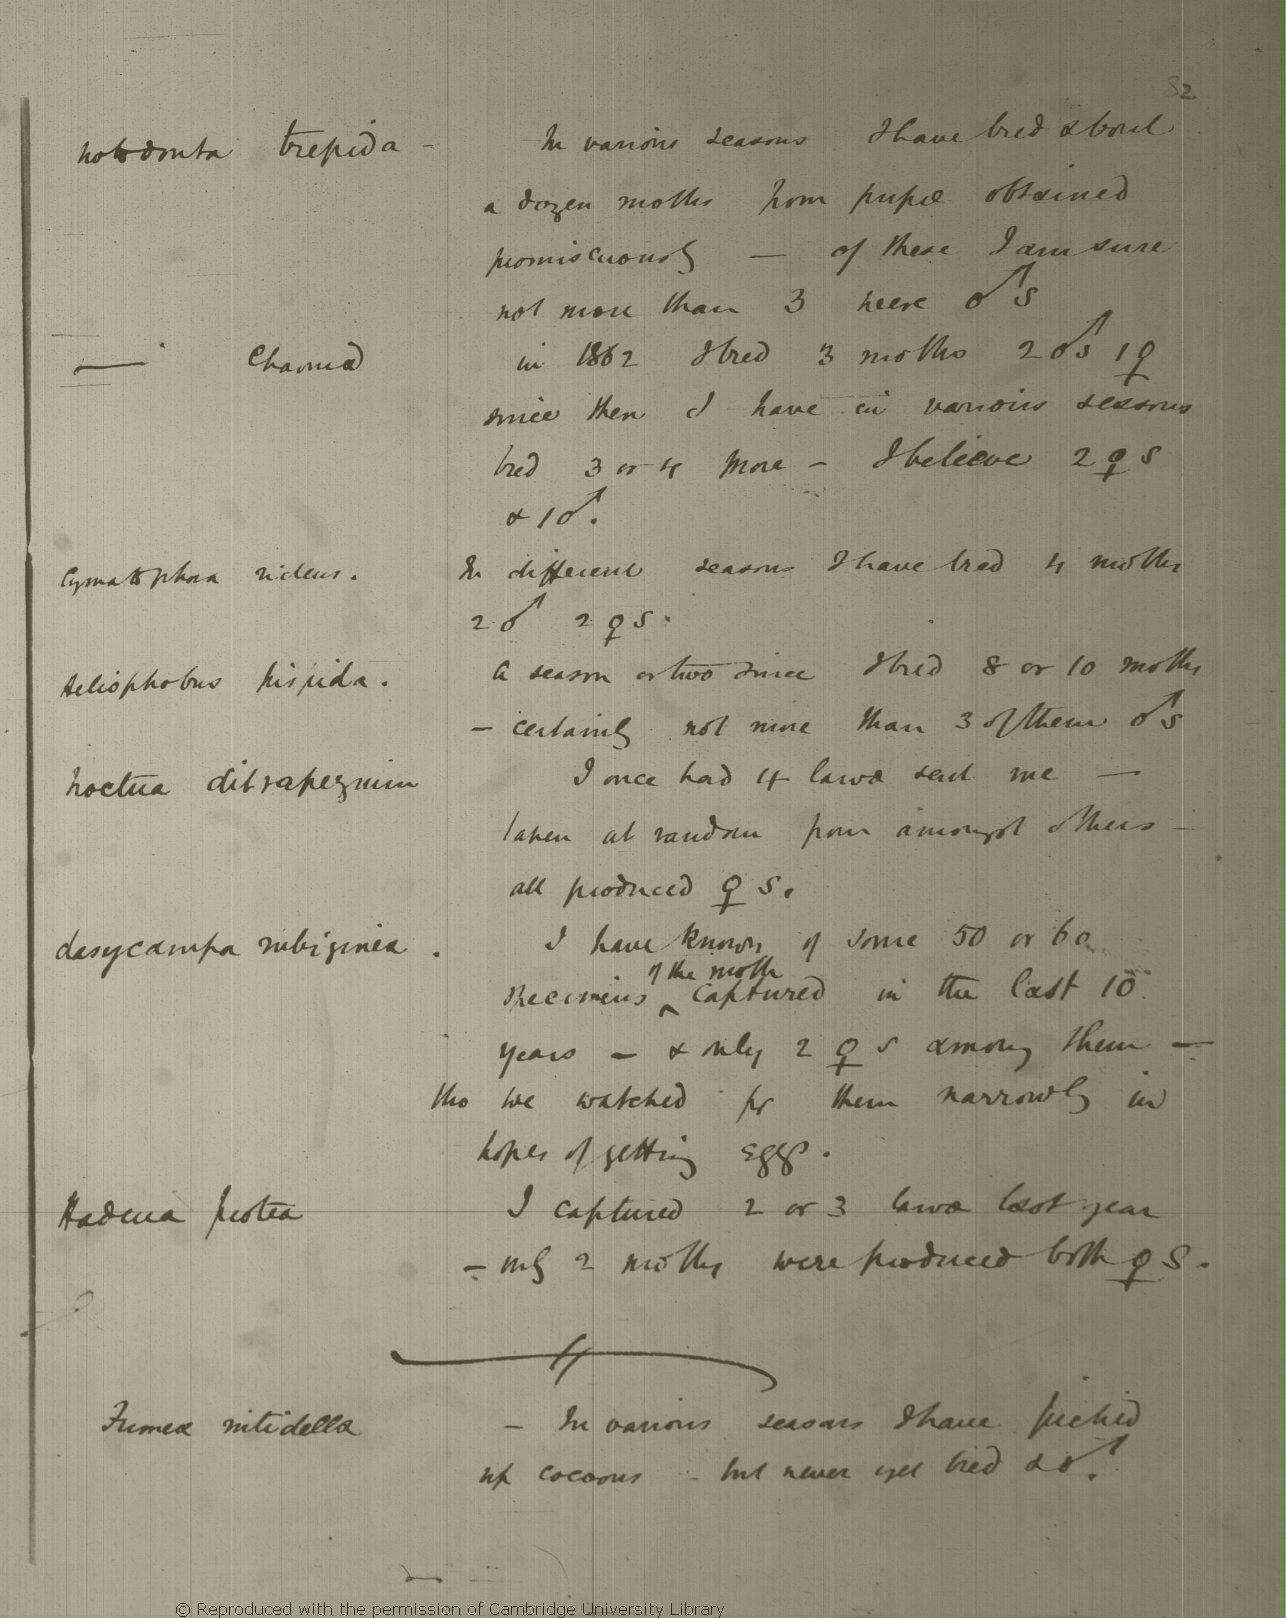 82
notodonta trepida - In various seasons I have bred about
a dozen moths from pupæ obtained
promiscuously — of these I am sure
not more than 3 were ♂s
— chaonia in 1862 I bred 3 moths 2 ♂s 1 ♀
since then I have in various seasons
bred 3 or 4 more - I believe 2 ♀s
& 1 ♂.
Cymatophora ridens. In different seasons I have bred 4 moths
2 ♂ 2 ♀s.
Heliophobus hispida. A season or two since I bred 8 or 10 moths
- certainly not more than 3 of them ♂s
Noctua ditrapezium I once had 4 larvæ sent me —
taken at random from amongst others -
all produced ♀s.
dasycampa rubiginea. I have known of some 50 or 60
of the moth
specimens ^ captured in the last 10
years - & only 2 ♀s among them —
tho we watched for them narrowly in
hopes of getting eggs.
Hadena protea I captured 2 or 3 larvæ last year
- only 2 moths were produced both ♀s.
Fumea nitidella - In various seasons I have picked
up cocoons - but never yet bred a ♂.
© Reproduced with the permission of Cambridge University Library